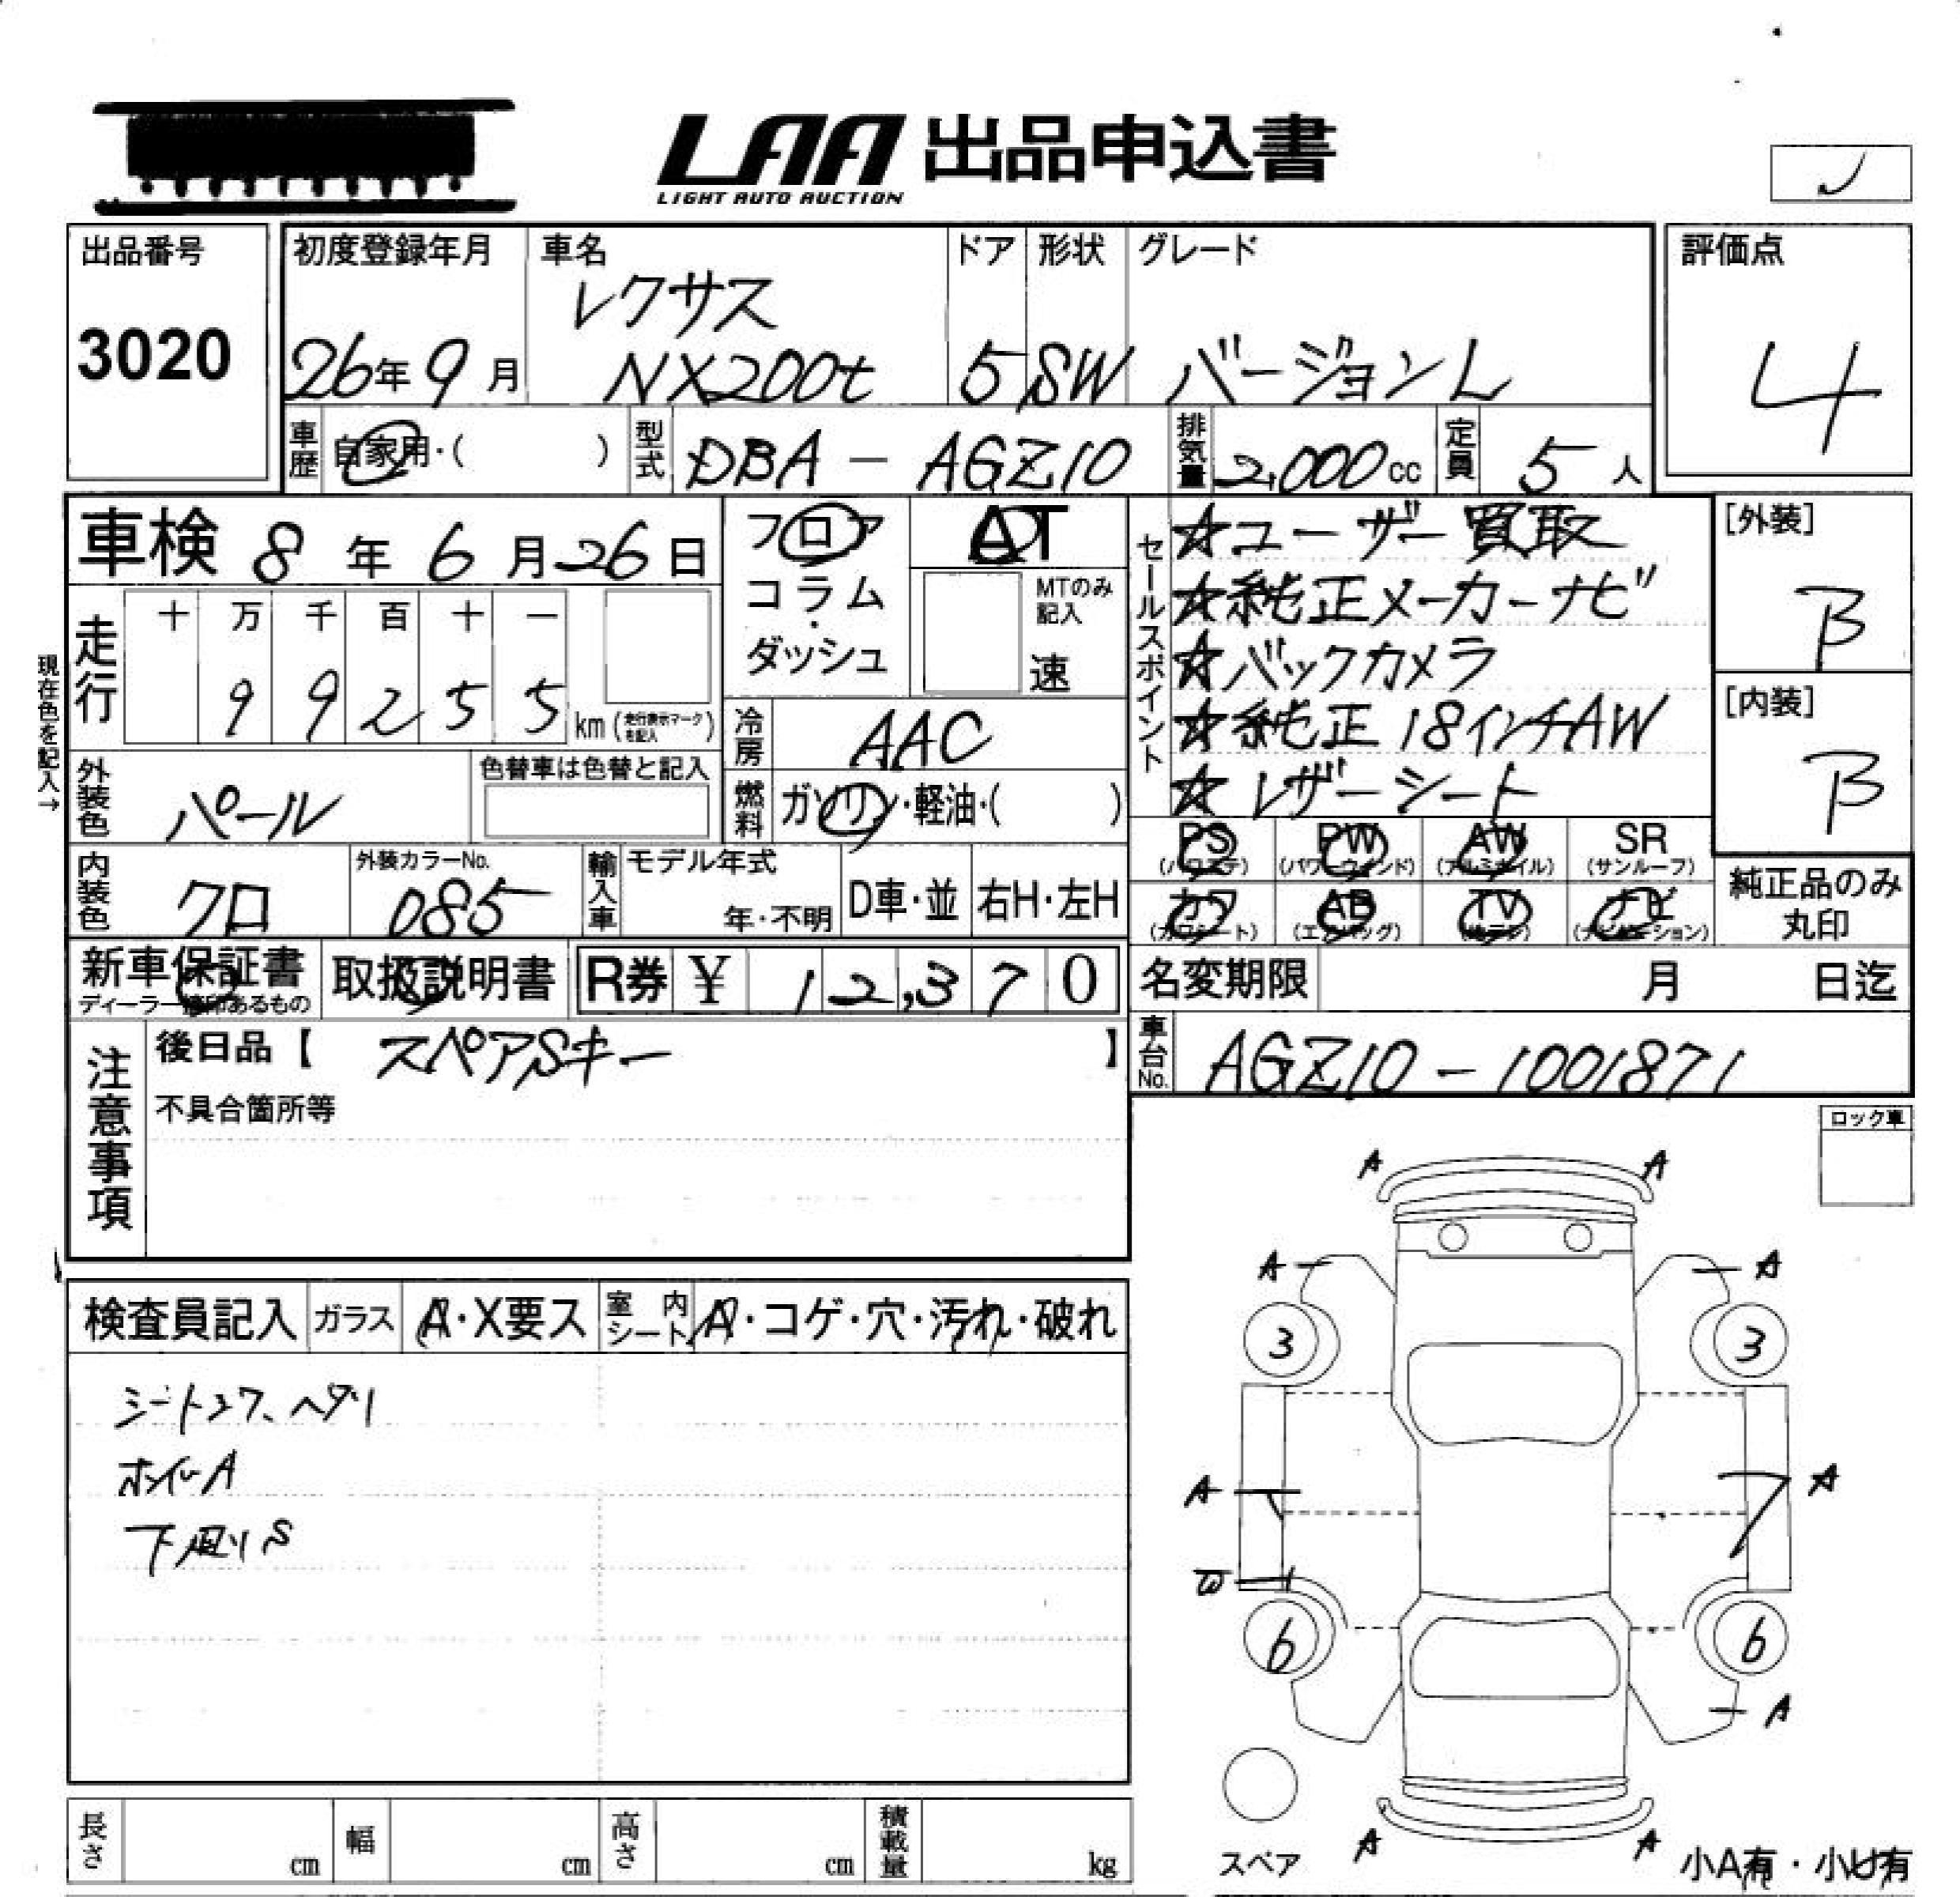 LAA 出品申込書
LIGHT AUTO AUCTION
出品番号
3020
初度登録年月
26年9月
車名
レクサス
NX200t
ドア
5
形状
SW
グレード
バージョンL
評価点
4
車歴 自家用・( )
型式 DBA - AGZ10
排気量 2,000cc
定員 5人
車検 8年6月26日
フロア
コラム
・
ダッシュ
AT
MTのみ
記入
速
走行
十 万 千 百 十 一
9 9 2 5 5
km(走行表示マークを記入)
現在色を記入→
冷房 AAC
外装色 パール
色替車は色替と記入
燃料 ガソリン・軽油・( )
セールスポイント
☆ユーザー買取
☆純正メーカーナビ
☆バックカメラ
☆純正18インチAW
☆レザーシート
[外装]
B
[内装]
B
内装色 クロ
外装カラーNo.
085
輸入車
モデル年式
年・不明
D車・並
右H・左H
PS
(パワステ)
PW
(パワーウィンド)
AW
(アルミホイル)
SR
(サンルーフ)
カワ
(カワシート)
AB
(エアバッグ)
TV
ナビ
(ナビゲーション)
純正品のみ
丸印
新車保証書
ディーラー捺印あるもの
取扱説明書
R券 ¥ 12,370
名変期限 月 日迄
注意事項
後日品【 スペアSキー 】
不具合箇所等
車台No. AGZ10-1001871
ロック車
検査員記入
ガラス A・X要ス
室内シート A・コゲ・穴・汚れ・破れ
シートコワ、ヘタリ
ホイルA
下廻りS
A A
A A
3 3
A A
W
6 6
A
A A
スペア
小A有・小U有
長さ cm
幅 cm
高さ cm
積載量 kg